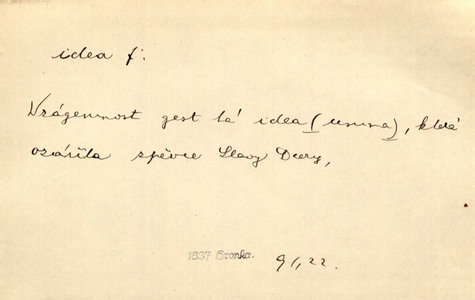 idea f.
Vzágemnost gest tá idea (unina), která
ozářila spěvce Slavy Dcery,
1837 Hronka. 9/1, 22.